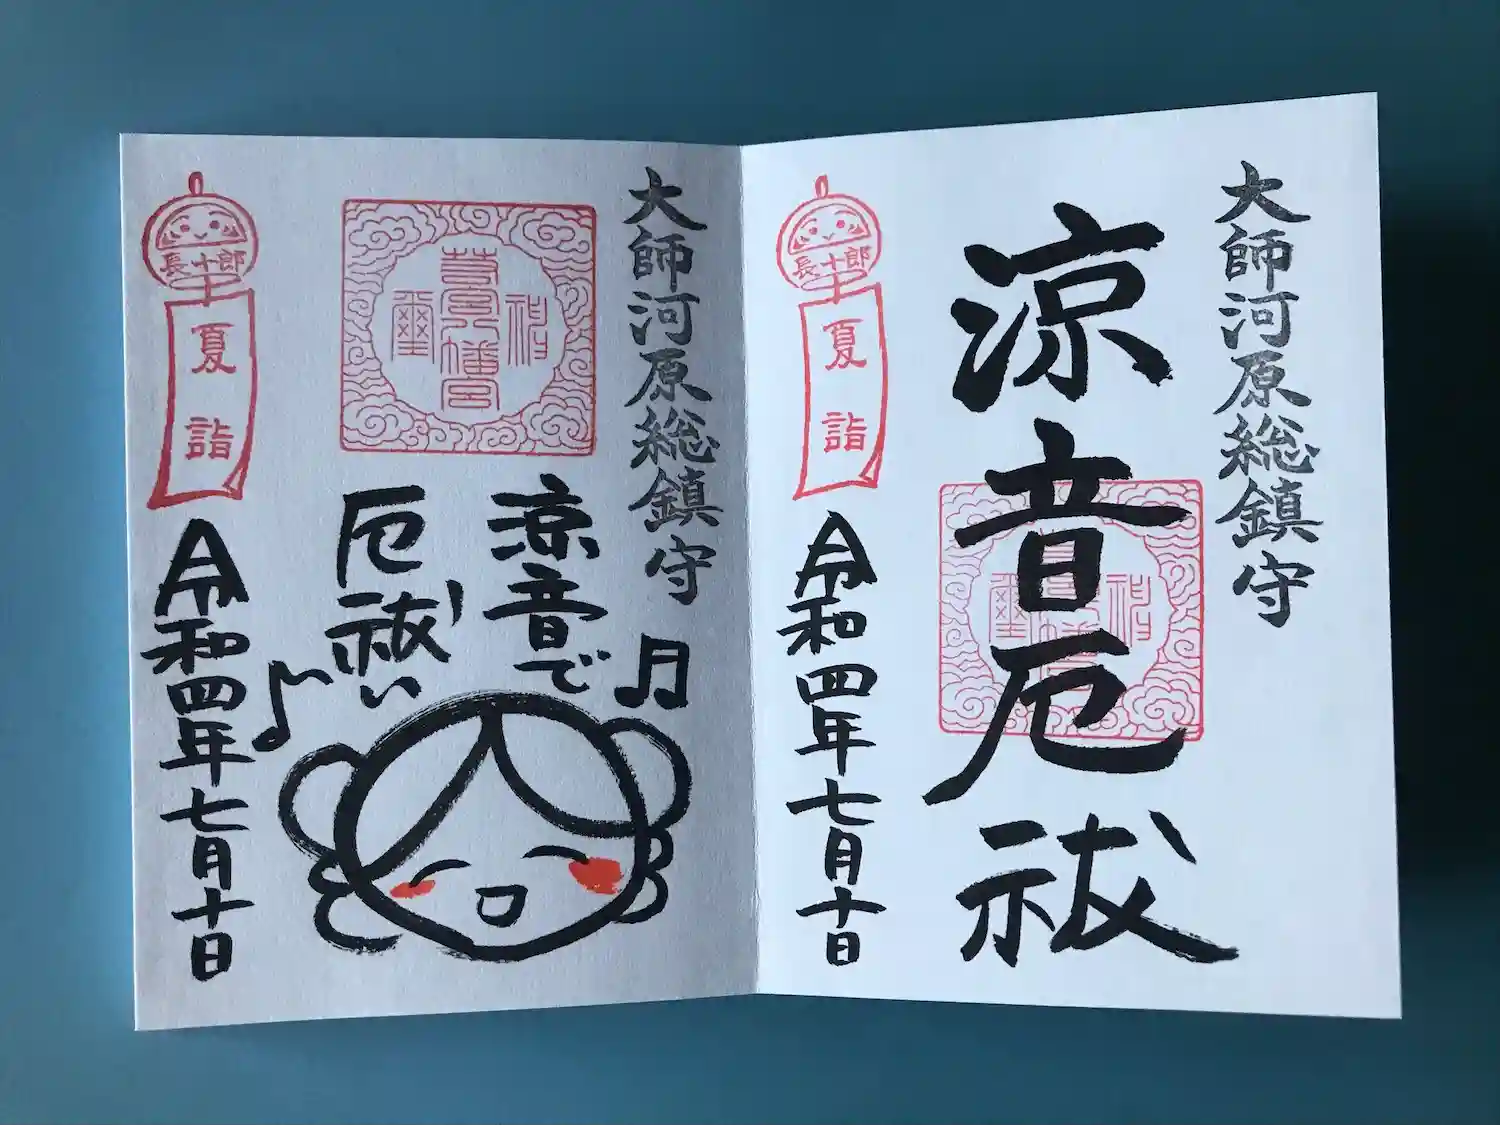 大師河原総鎮守
涼音厄祓
長十郎
夏詣
令和四年七月十日
大師河原総鎮守
涼音で
厄祓い
長十郎
夏詣
令和四年七月十日